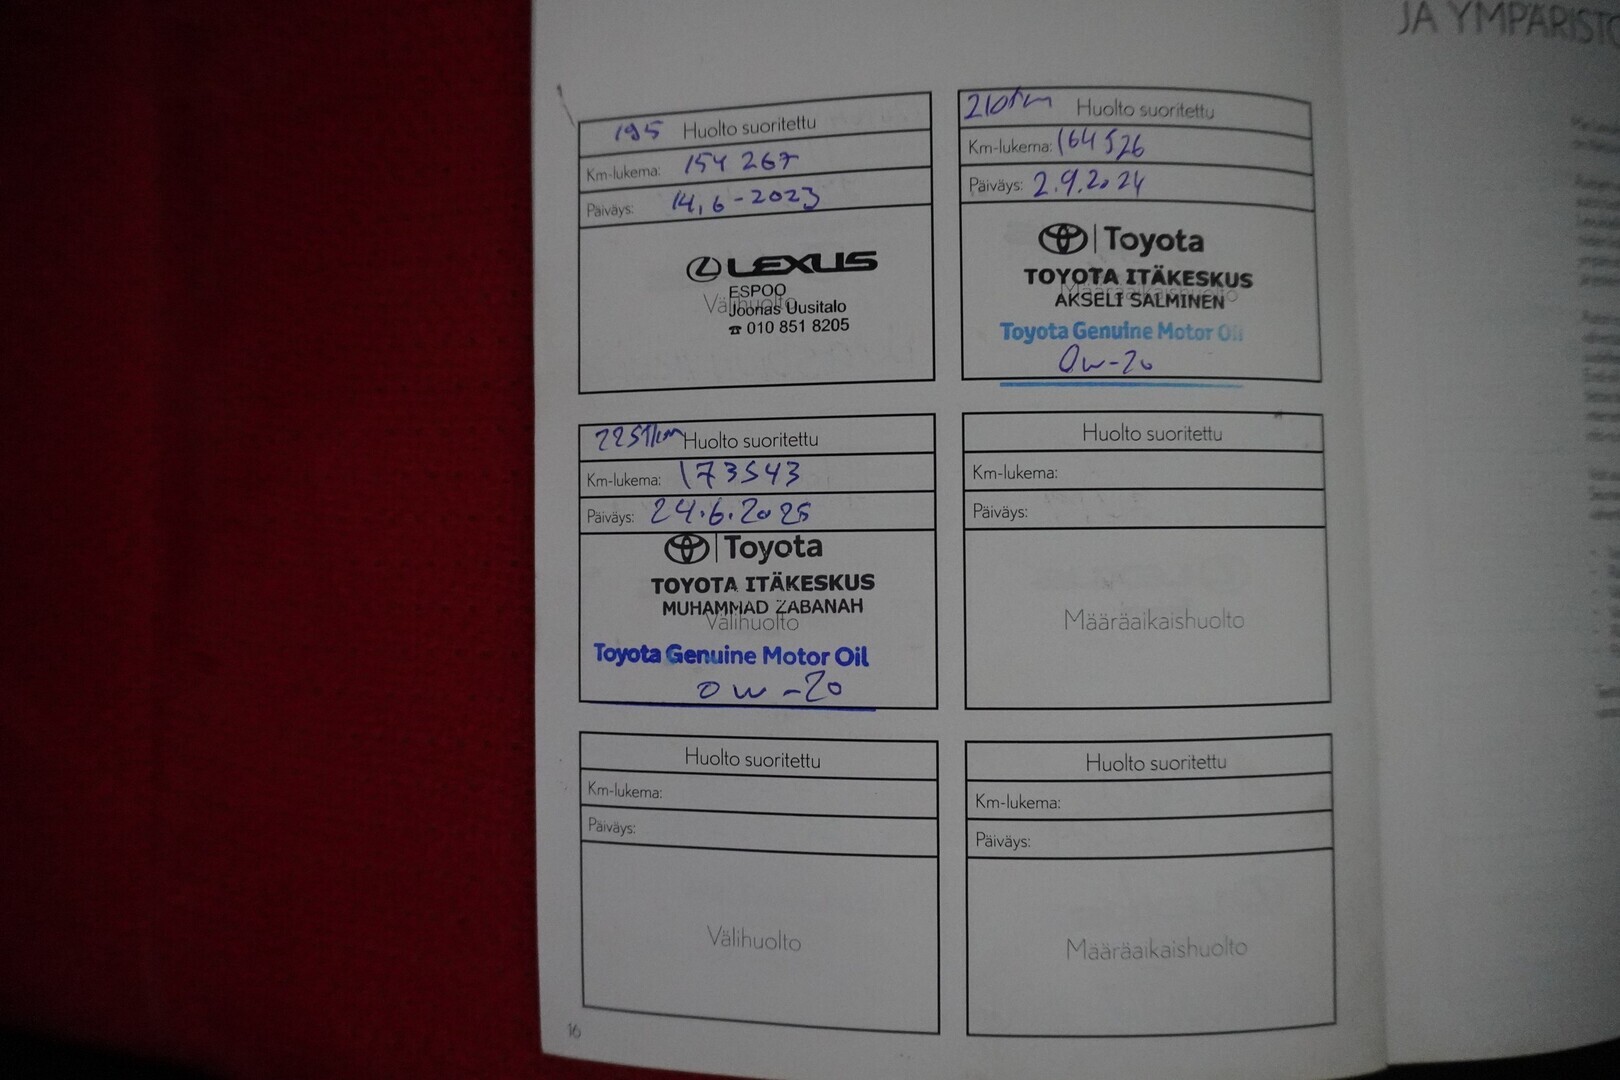 JA YMPÄRISTÖ
195 Huolto suoritettu
Km-lukema: 154 267
Päiväys: 14.6-2023
LEXUS
ESPOO
Välihuolto
Joonas Uusitalo
☎ 010 851 8205
210tkm Huolto suoritettu
Km-lukema: 164526
Päiväys: 2.9.2024
Toyota
TOYOTA ITÄKESKUS
Määräaikaishuolto
AKSELI SALMINEN
Toyota Genuine Motor Oil
0w-20
225tkm Huolto suoritettu
Km-lukema: 173543
Päiväys: 24.6.2025
Toyota
TOYOTA ITÄKESKUS
MUHAMMAD ZABANAH
Välihuolto
Toyota Genuine Motor Oil
0w-20
Huolto suoritettu
Km-lukema:
Päiväys:
Määräaikaishuolto
Huolto suoritettu
Km-lukema:
Päiväys:
Välihuolto
Huolto suoritettu
Km-lukema:
Päiväys:
Määräaikaishuolto
16